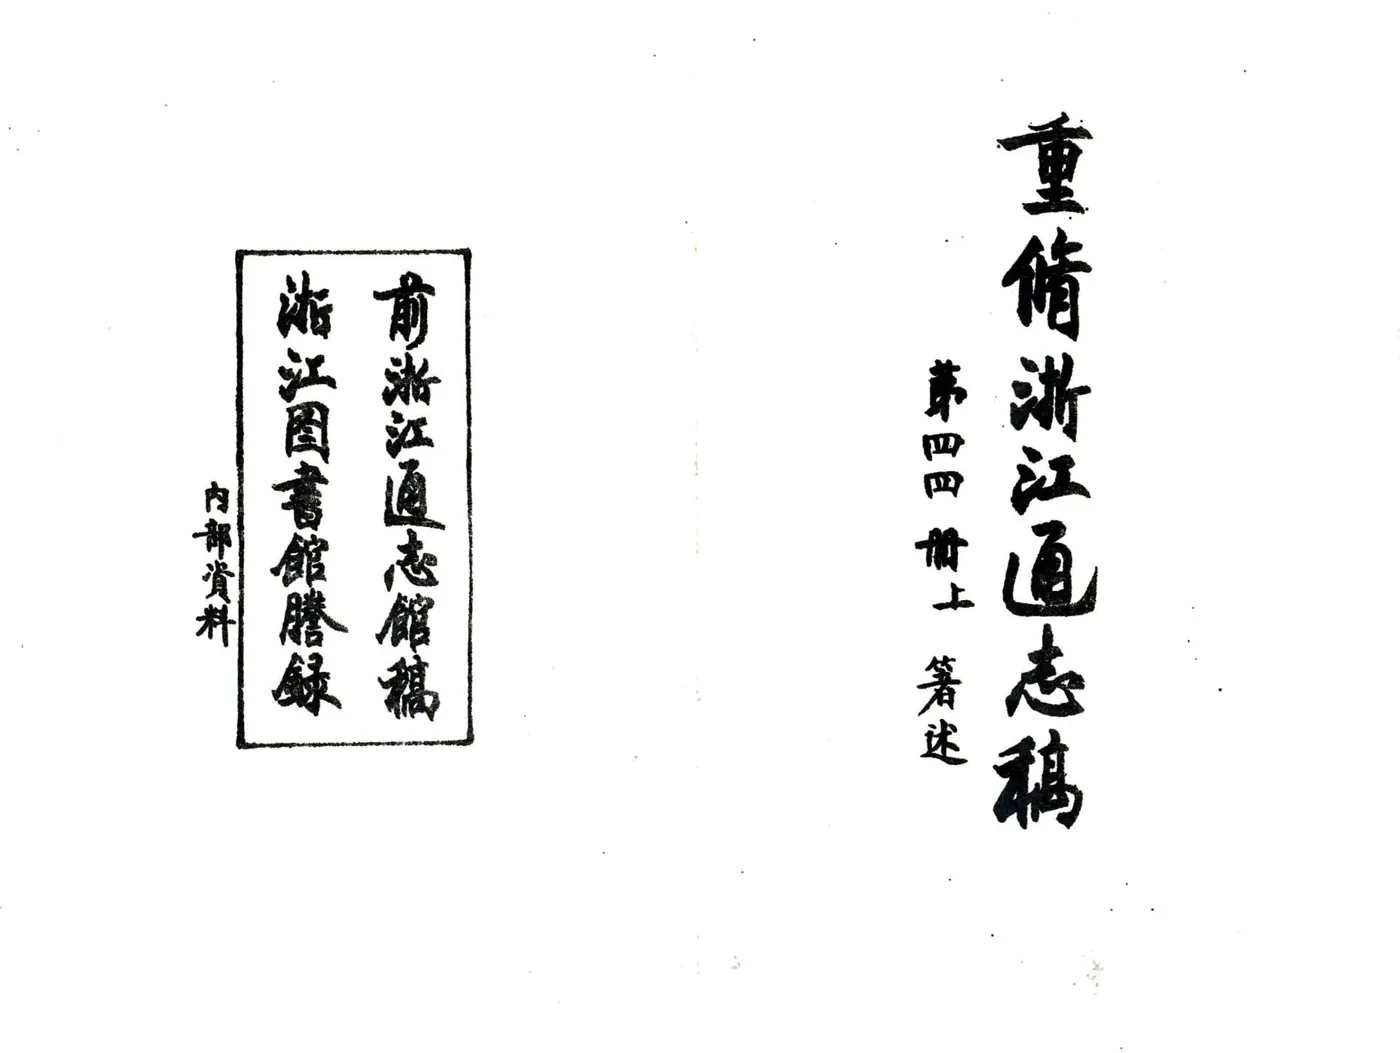 重脩浙江通志稿
第四四册上 箸述
前浙江通志館稿
浙江图書館謄録
内部資料